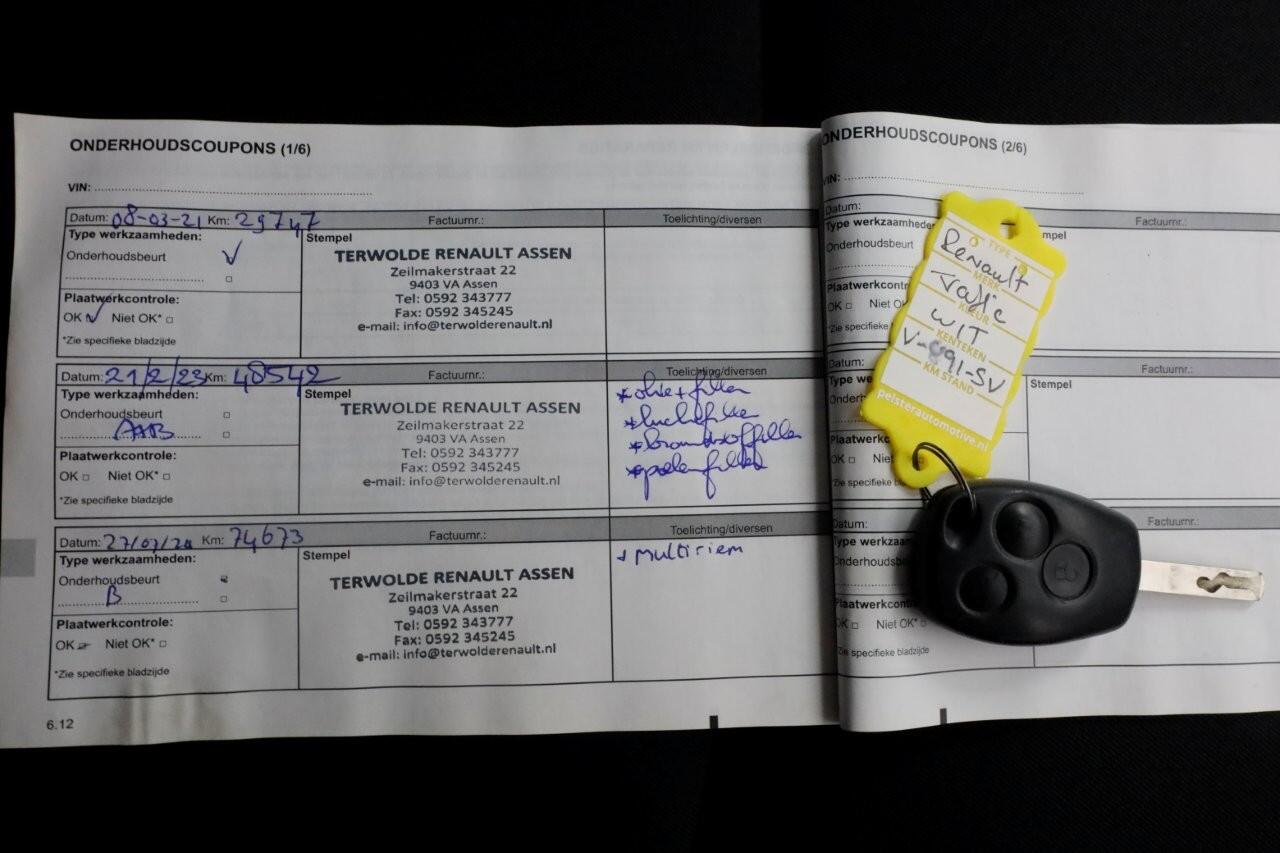 ONDERHOUDSCOUPONS (1/6)
VIN:
Datum: 08-03-21 Km: 29747 Factuurnr.: Toelichting/diversen
Type werkzaamheden: Stempel
Onderhoudsbeurt
Plaatwerkcontrole:
OK Niet OK*
*Zie specifieke bladzijde
TERWOLDE RENAULT ASSEN
Zeilmakerstraat 22
9403 VA Assen
Tel: 0592 343777
Fax: 0592 345245
e-mail: info@terwolderenault.nl
Datum: 21/2/23 Km: 48542 Factuurnr.: Toelichting/diversen
Type werkzaamheden: Stempel
Onderhoudsbeurt
Plaatwerkcontrole:
OK Niet OK*
*Zie specifieke bladzijde
TERWOLDE RENAULT ASSEN
Zeilmakerstraat 22
9403 VA Assen
Tel: 0592 343777
Fax: 0592 345245
e-mail: info@terwolderenault.nl
* olie + filter
* luchtfilter
* brandstoffilter
* pollenfilter
Datum: Km: 74673 Factuurnr.: Toelichting/diversen
Type werkzaamheden: Stempel
Onderhoudsbeurt
B
Plaatwerkcontrole:
OK Niet OK*
*Zie specifieke bladzijde
TERWOLDE RENAULT ASSEN
Zeilmakerstraat 22
9403 VA Assen
Tel: 0592 343777
Fax: 0592 345245
e-mail: info@terwolderenault.nl
+ multiriem
6.12
ONDERHOUDSCOUPONS (2/6)
VIN:
Datum: Factuurnr.:
Type werkzaamhede
Onderhoudsbeurt
Plaatwerkcontr
OK Niet O
*Zie specifieke b
mpel
Datum:
Type we
Onder
Plaatwerkc
OK Niet
*Zie specifieke b
Stempel
Datum: Factuurnr.:
Type werkzaam
Onderhoudsbeu
Plaatwerkcont
OK Niet OK*
*Zie specifieke bladzijde
TYPE
Renault
MERK
Trafic
KLEUR
WIT
KENTEKEN
V-991-SV
KM STAND
pelsterautomotive.nl